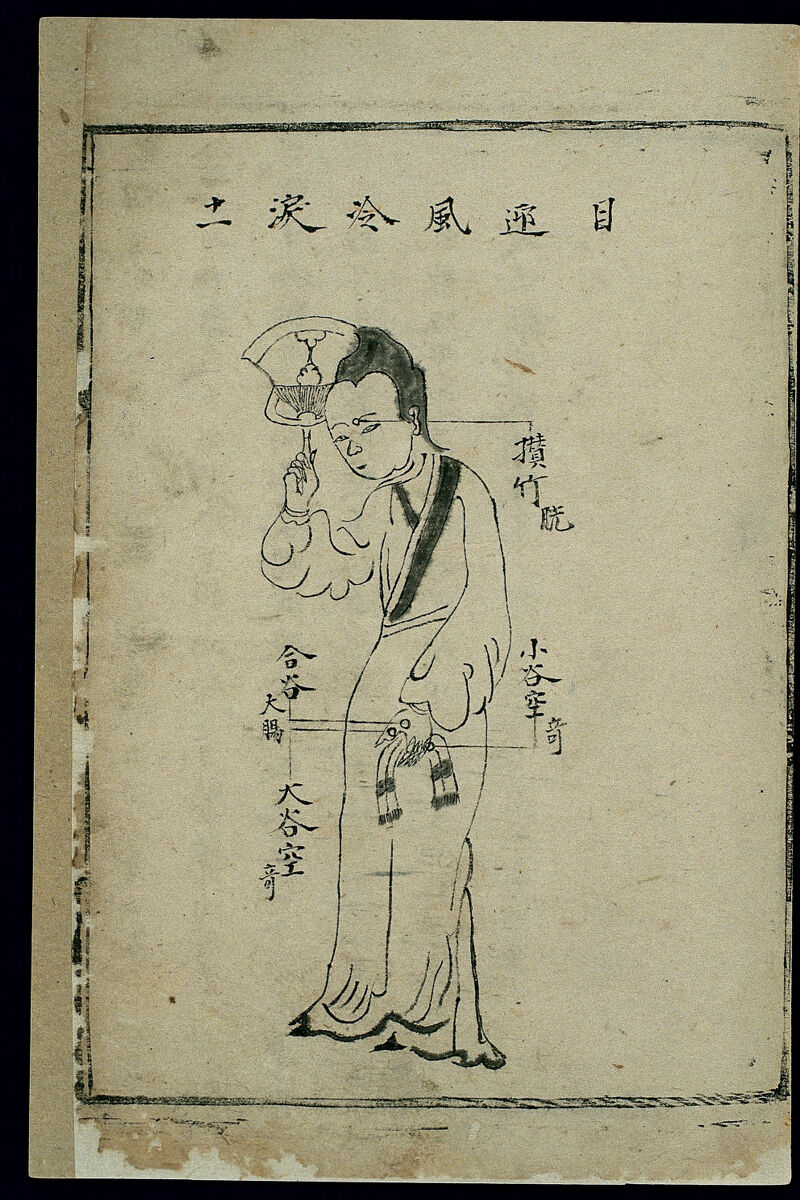 目迎風冷淚十一
攅竹
胱
小谷空
奇
合谷
大腸
大谷空
奇